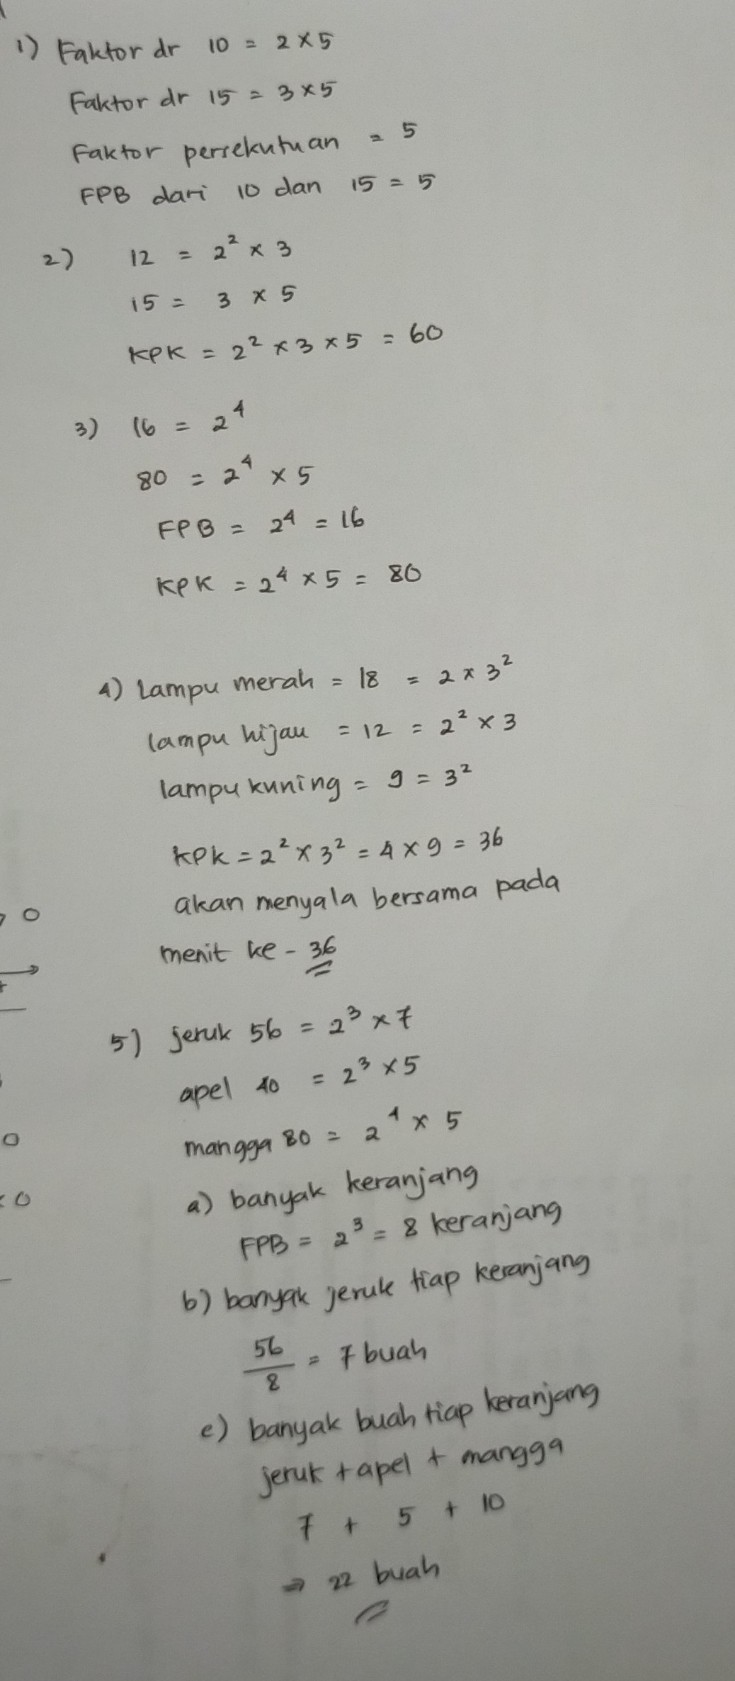 1) Faktor dr 10 = 2 x 5
Faktor dr 15 = 3 x 5
Faktor persekutuan = 5
FPB dari 10 dan 15 = 5
2) 12 = 2² x 3
15 = 3 x 5
KPK = 2² x 3 x 5 = 60
3) 16 = 2⁴
80 = 2⁴ x 5
FPB = 2⁴ = 16
KPK = 2⁴ x 5 = 80
4) Lampu merah = 18 = 2 x 3²
lampu hijau = 12 = 2² x 3
lampu kuning = 9 = 3²
KPK = 2² x 3² = 4 x 9 = 36
akan menyala bersama pada
menit ke - 36
5) jeruk 56 = 2³ x 7
apel 40 = 2³ x 5
mangga 80 = 2⁴ x 5
a) banyak keranjang
FPB = 2³ = 8 keranjang
b) banyak jeruk tiap keranjang
56/8 = 7 buah
c) banyak buah tiap keranjang
jeruk + apel + mangga
7 + 5 + 10
⇒ 22 buah